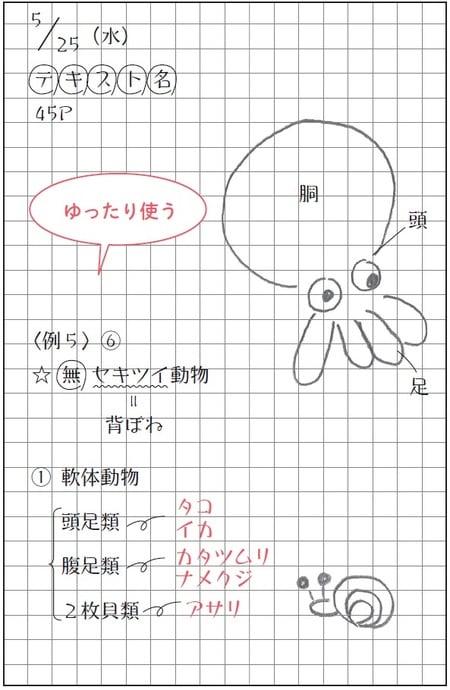 5/25（水）
テキスト名
45P
ゆったり使う
胴
頭
足
〈例5〉⑥
☆ 無 セキツイ動物
=
背ぼね
① 軟体動物
頭足類 タコ
イカ
腹足類 カタツムリ
ナメクジ
２枚貝類 アサリ